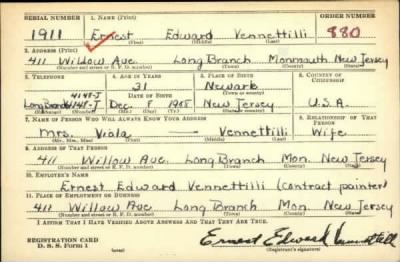 SERIAL NUMBER 1. NAME (Print) ORDER NUMBER
1911 Ernest Edward Vennettilli 880
(First) (Middle) (Last)
2. ADDRESS (Print)
411 Willow Ave. Long Branch Monmouth New Jersey
(Number and street or R. F. D. number) (Town) (County) (State)
3. TELEPHONE 4. AGE IN YEARS 5. PLACE OF BIRTH 6. COUNTRY OF CITIZENSHIP
31 Newark
4148-J
Long Branch 4148-J Dec. 8 1908 New Jersey U.S.A.
(Exchange) (Number) (Mo.) (Day) (Yr.) (State or country)
7. NAME OF PERSON WHO WILL ALWAYS KNOW YOUR ADDRESS 8. RELATIONSHIP OF THAT PERSON
Mrs. Viola — Vennettilli Wife
(Mr., Mrs., Miss) (First) (Middle) (Last)
9. ADDRESS OF THAT PERSON
411 Willow Ave. Long Branch Mon. New Jersey
(Number and street or R. F. D. number) (Town) (County) (State)
10. EMPLOYER'S NAME
Ernest Edward Vennettilli (contract painter)
11. PLACE OF EMPLOYMENT OR BUSINESS
411 Willow Ave. Long Branch Mon. New Jersey
(Number and street or R. F. D. number) (Town) (County) (State)
I AFFIRM THAT I HAVE VERIFIED ABOVE ANSWERS AND THAT THEY ARE TRUE.
REGISTRATION CARD
D. S. S. Form 1
Ernest Edward Vennettilli
(Registrant's signature)